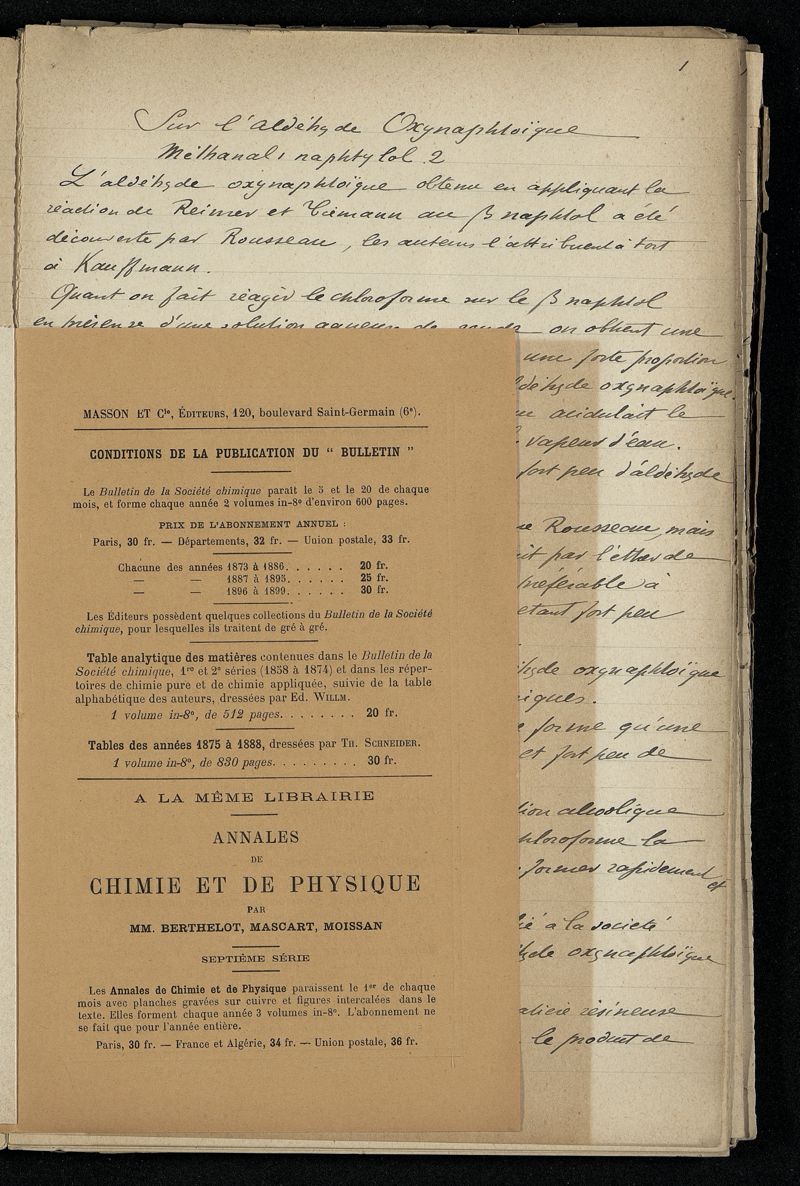 1
Sur l'Aldéhyde Oxynaphtoïque
Méthanal 1 naphtylol 2
L'aldéhyde oxynaphtoïque obtenu en appliquant la
réaction de Reimer et Tiemann au β naphtol a été
découverte par Rousseau, les auteurs l'attribuent à tort
à Kauffmann.
Quant on fait réagir le chloroforme sur le β naphtol
en présence d'une solution aqueuse de soude on obtient une
une forte proportion
aldéhyde oxynaphtoïque.
acidulait le
vapeur d'eau.
fort peu d'aldéhyde
Rousseau, mais
par l'éther de
préférable à
étant fort peu
oxynaphtoïque
forme qu'une
et fort peu de
alcoolique
chloroforme la
former rapidement
et
à la société
oxynaphtoïque
résineuse
le produit de
MASSON ET Cie, ÉDITEURS, 120, boulevard Saint-Germain (6e).
CONDITIONS DE LA PUBLICATION DU “ BULLETIN ”
Le Bulletin de la Société chimique paraît le 5 et le 20 de chaque
mois, et forme chaque année 2 volumes in-8o d'environ 600 pages.
PRIX DE L'ABONNEMENT ANNUEL :
Paris, 30 fr. — Départements, 32 fr. — Union postale, 33 fr.
Chacune des années 1873 à 1886. . . . . . 20 fr.
— — 1887 à 1895. . . . . . 25 fr.
— — 1896 à 1899. . . . . . 30 fr.
Les Éditeurs possèdent quelques collections du Bulletin de la Société
chimique, pour lesquelles ils traitent de gré à gré.
Table analytique des matières contenues dans le Bulletin de la
Société chimique, 1re et 2e séries (1858 à 1874) et dans les réper-
toires de chimie pure et de chimie appliquée, suivie de la table
alphabétique des auteurs, dressées par Ed. WILLM.
1 volume in-8o, de 512 pages. . . . . . . . 20 fr.
Tables des années 1875 à 1888, dressées par TH. SCHNEIDER.
1 volume in-8o, de 830 pages. . . . . . . . . 30 fr.
A LA MÊME LIBRAIRIE
ANNALES
DE
CHIMIE ET DE PHYSIQUE
PAR
MM. BERTHELOT, MASCART, MOISSAN
SEPTIÈME SÉRIE
Les Annales de Chimie et de Physique paraissent le 1er de chaque
mois avec planches gravées sur cuivre et figures intercalées dans le
texte. Elles forment chaque année 3 volumes in-8o. L'abonnement ne
se fait que pour l'année entière.
Paris, 30 fr. — France et Algérie, 34 fr. — Union postale, 36 fr.